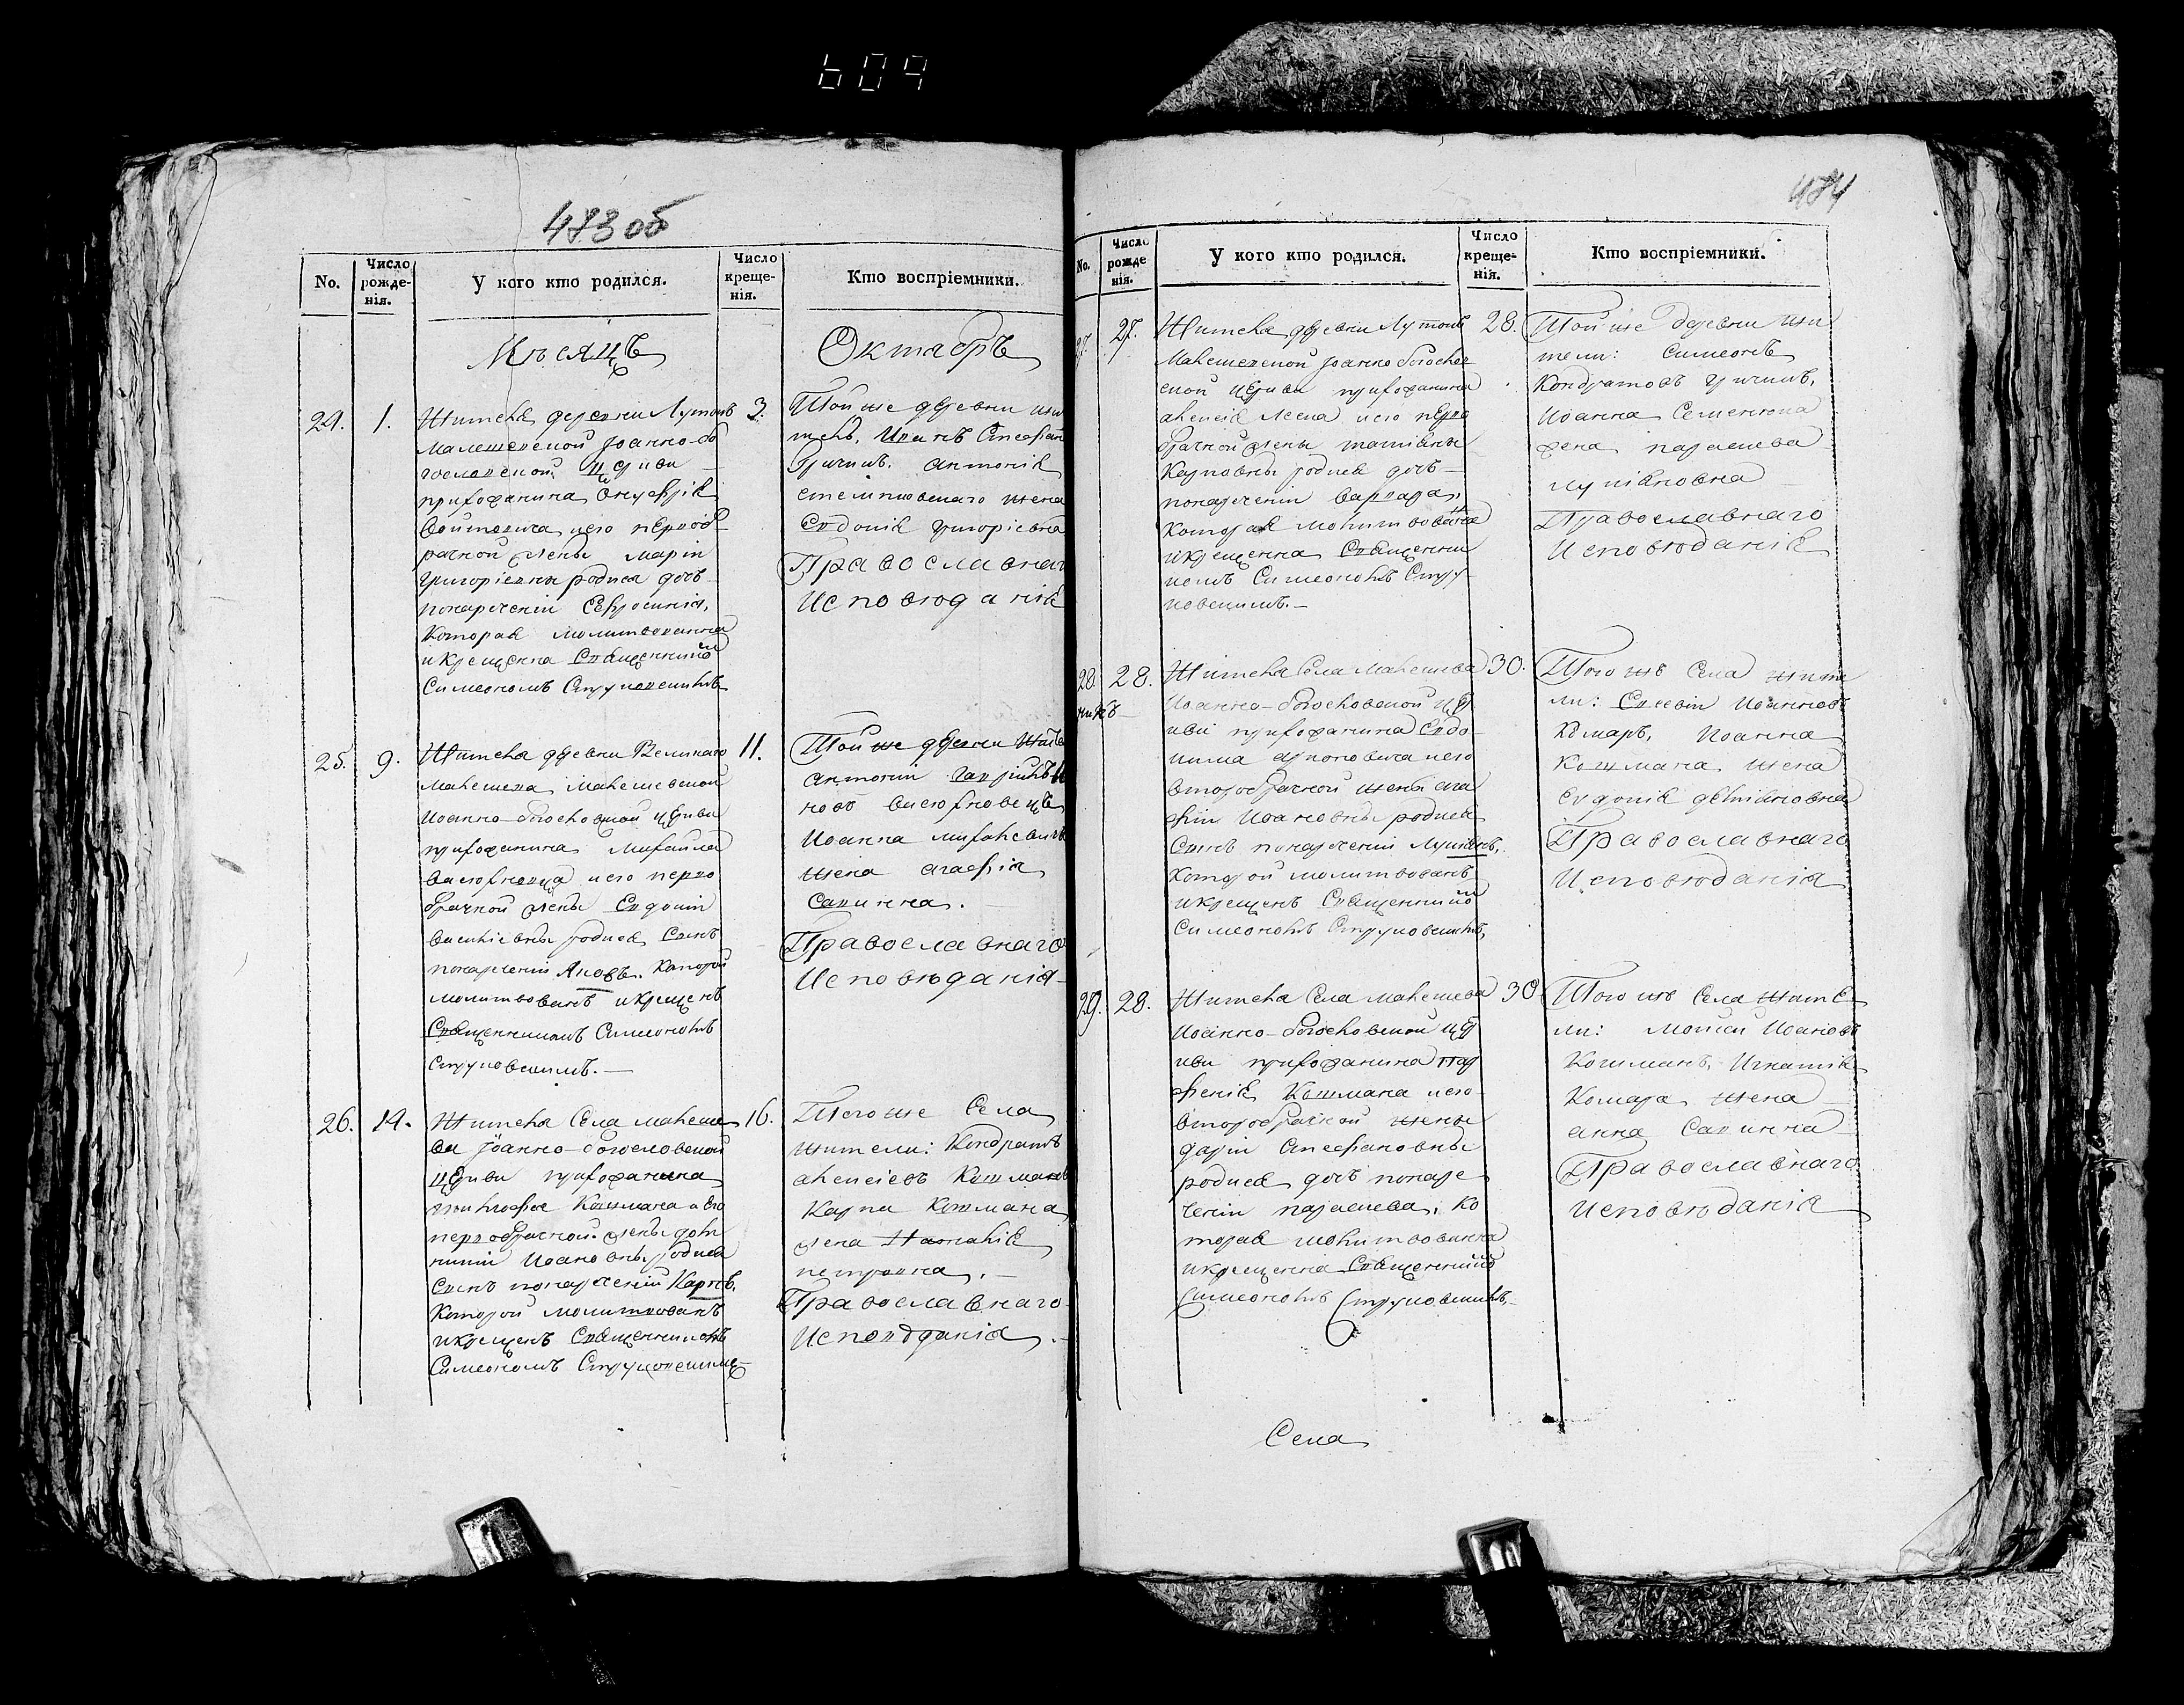 609
473 об
No.
Число рожде-нія.
У кого кто родился.
Число креще-нія.
Кто воспріемники.
Мѣсяцъ
Октябръ
24.
1.
Жителя деревни Лутокъ
Малешевской Іоанно-бо
гословской церкви
прихожанина Онуфрія
Войтовича иего первоб
рачной жены Маріи
Григоріевны родися дочь
понаречении Ефросинія,
Которая молитвованна
икрещенна Священни
Симеономъ Струковскимъ
3.
Той же деревни жи
тель, Иванъ Стефан
Гричикъ. Антонія
жена
Евдокія Григоріевна
Православнаг
Исповѣданія
25.
9.
Жителя деревни Великаго
Малешева Малешевской
Иоанно-Богословской церкви
прихожанина Михайла
Васюхновца иего перво
брачной жены Евдокіи
Василіевны родися Сынъ
понареченіи Яковъ. Которой
молитвованъ икрещенъ
Священникомъ Симеономъ
Струковскимъ.—
11.
Той же деревни Жител
Антоній
новъ Васюхновецъ
Иоанна
жена агафія
Савинна.
Православнаго
Исповѣданія
26.
14.
Жителя Села малеше
ва Іоанно-богословской
Церкви прихожанина
Кошмана иего
первобрачной жены
Иоановны родися
Сынъ понареченіи Карпъ.
Которой молитвованъ
икрещенъ Священникомъ
Симеономъ Струковскимъ
16.
Тогоже Села
жители: Кондратъ
алексіевъ Кошманъ
Карпа Кошмана
жена Наталія
петровна.—
Православнаго
Исповѣданія.
484
No.
Число рожде нія.
У кого кто родился.
Число креще-нія.
Кто воспріемники.
27.
27.
Жителя деревни Лутокъ
Малешевской Іоанно богослов
ской церкви прихожанина
алексія иего перво
брачной жены татіаны
Карповны родися дочь
понареченіи Варвара,
Которая молитвована
икрещенна Священни
комъ Симеономъ Стру
ковскимъ.—
28.
Той же деревни жи
тели: Симеонъ
Кондратовъ Гричикъ,
Иоанна Семенюка
жена параскева
лукіановна
Православнаго
Исповѣданія
28.
28.
Жителя Села Малешева
Иоанно-Богословской цер
кви прихожанина Евдо
кима иего
второбрачной жены ага
фіи Иоановны родися
Сынъ понареченіи Лукіанъ,
Которой молитвованъ
икрещенъ Священни
Симеономъ Струковскимъ,
30.
Того жъ Села жите
ли: Евсевій Иоанновъ
Комаръ, Иоанна
Кошмана жена
Евдокія
Православнаго
Исповѣданія
29.
28.
Жителя Села малешева
Иоанно-Богословской цер
кви прихожанина пар
фенія Кошмана иего
второбрачной жены
даріи Стефановны
родися дочь понаре
ченіи параскева, Ко
торая молитвованна
икрещенна Священни
Симеономъ Струковскимъ,
30.
Того жъ Села жите
ли: Мойсей Иоановъ
Кошманъ, Игнатія
Комара жена
анна Савинна
Православнаго
Исповѣданія
Села